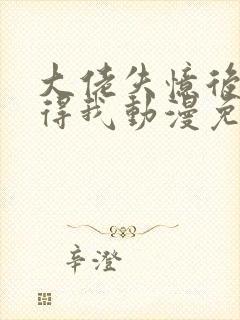 大佬失憶後
得我動漫免
辛澄